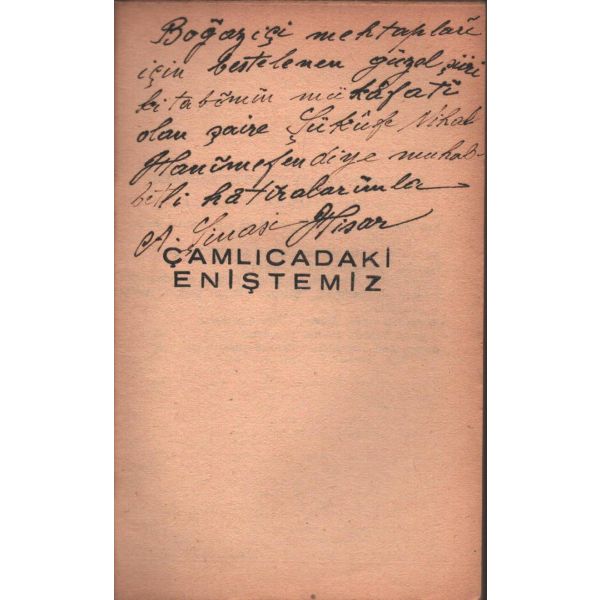 Boğaziçi mehtapları
için bestelenen güzel şiiri
kitabımın mükâfatı
olan şaire Şükûfe Nihal
Hanımefendiye muhab-
betli hâtıralarımla
A. Şinasi Hisar
ÇAMLICADAKİ
ENİŞTEMİZ